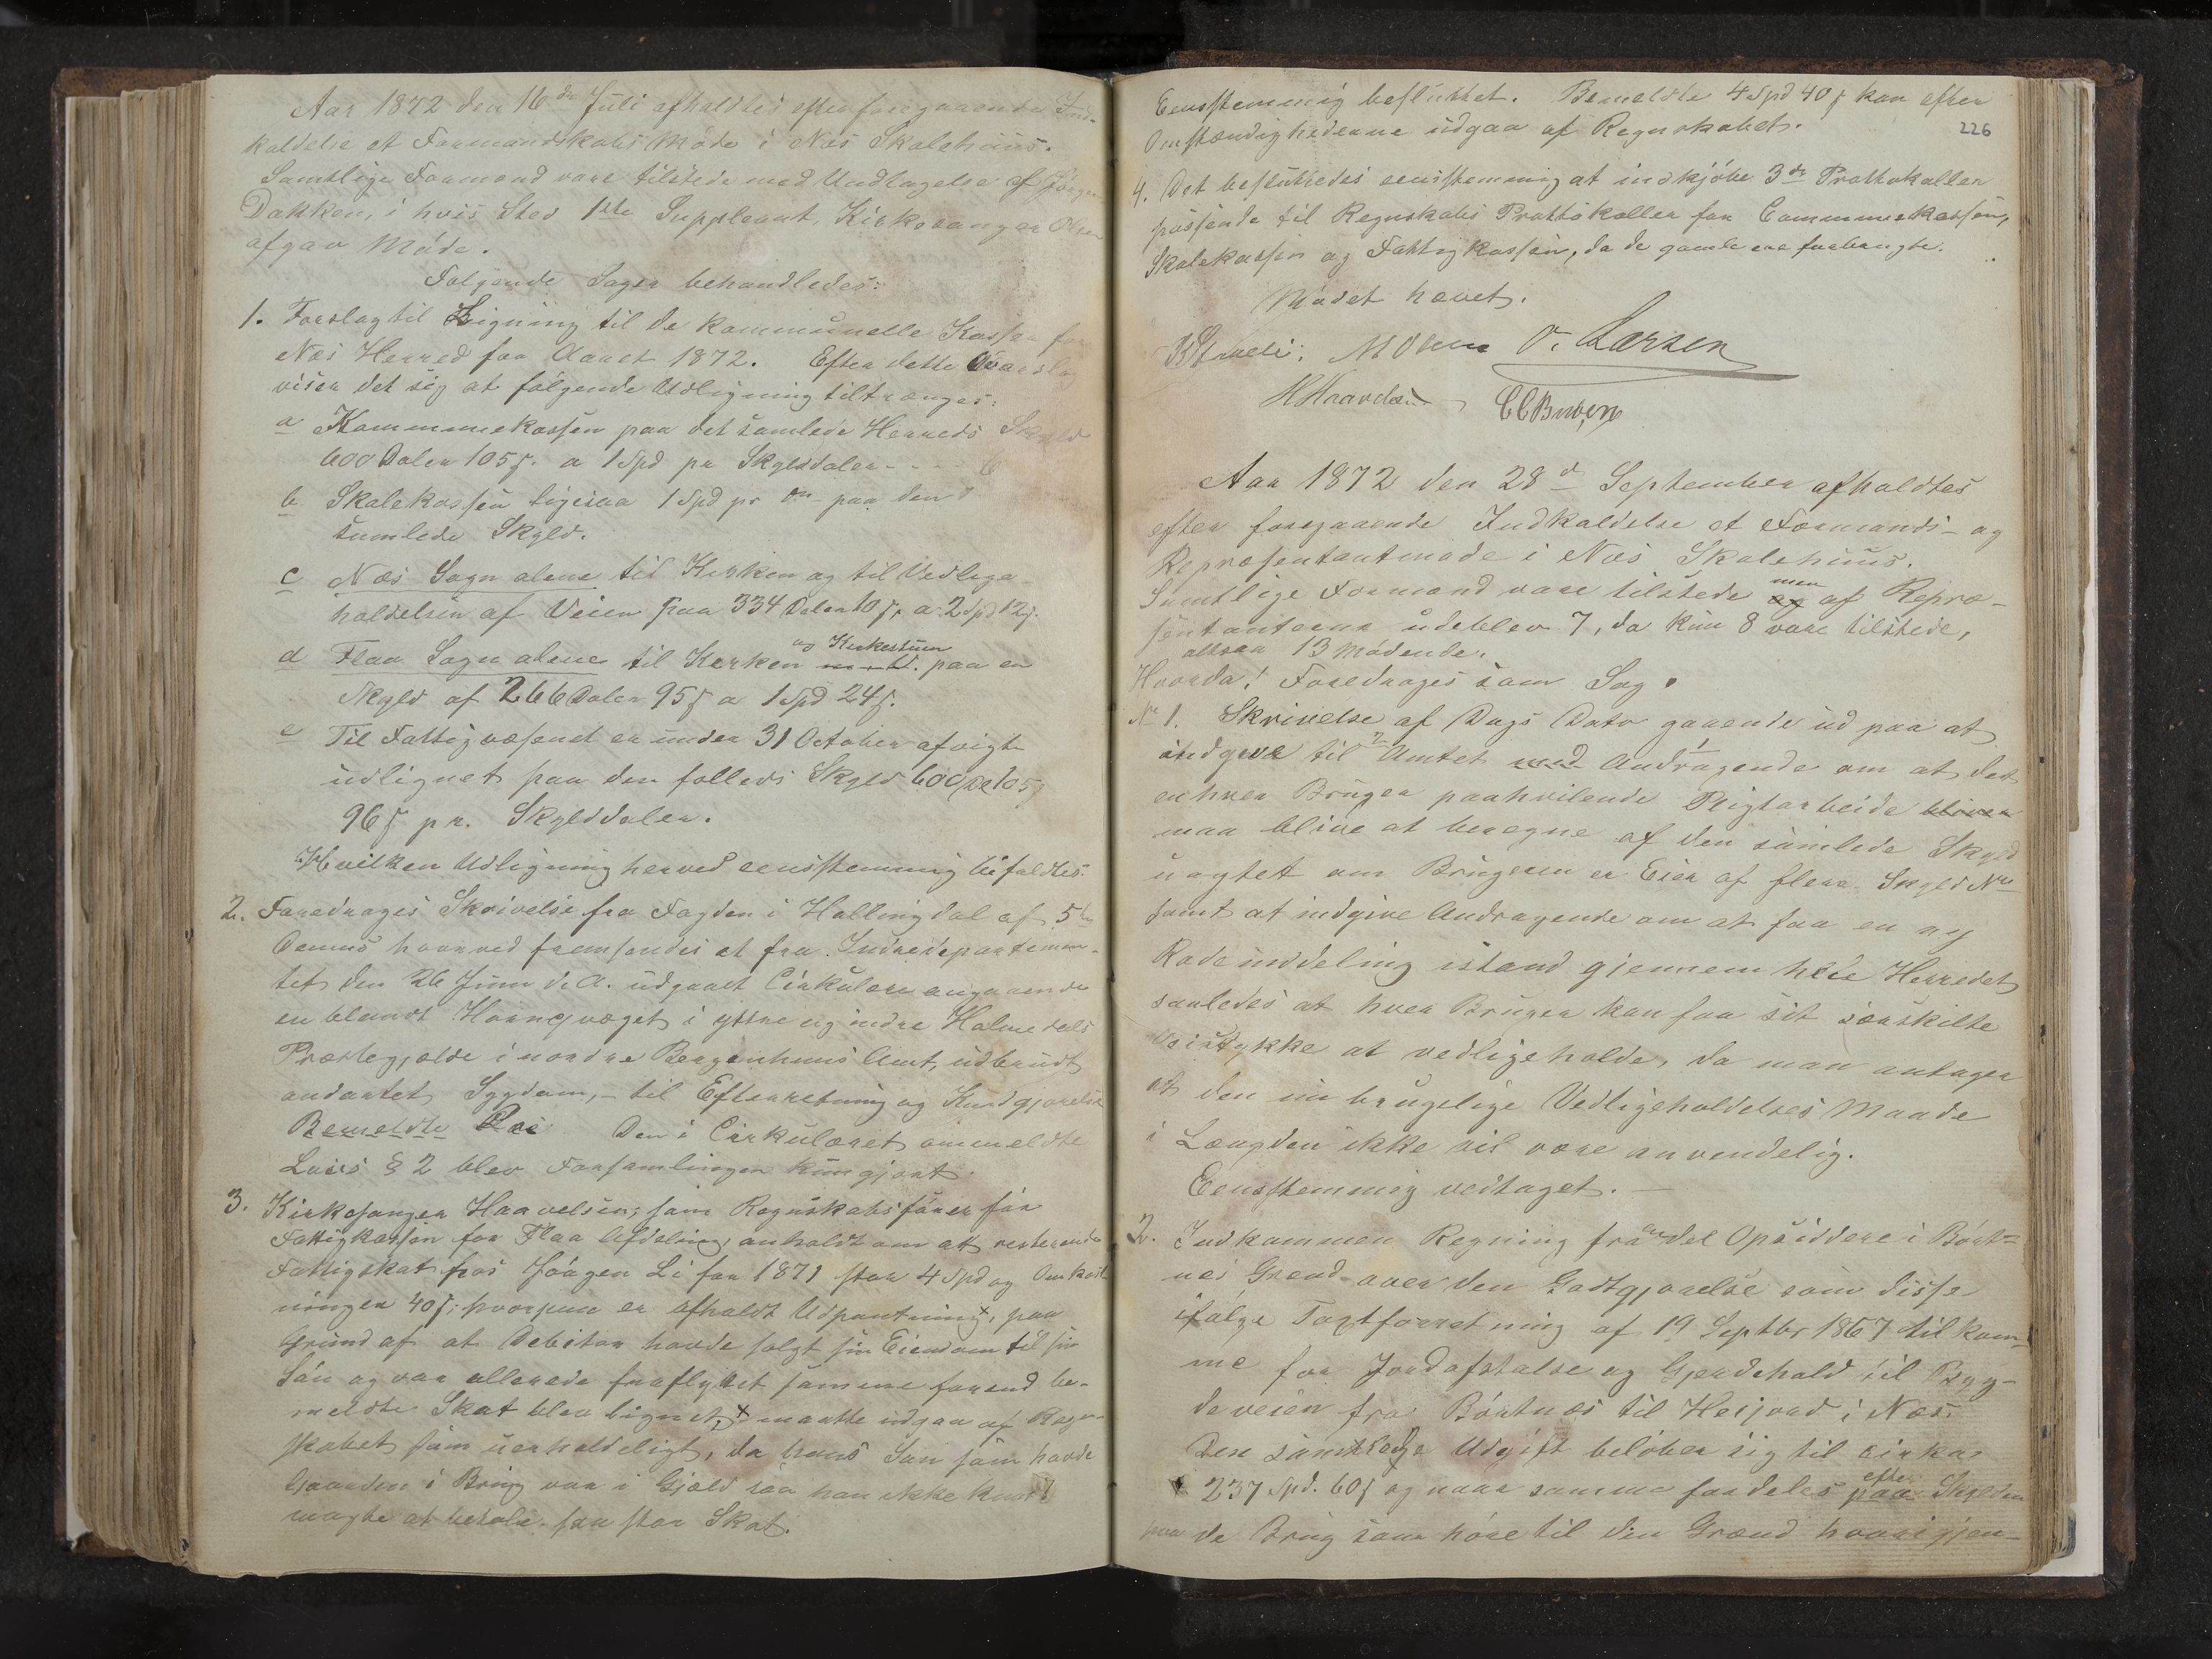 Aar 1872 den 16de Juli afholdtes efter foregaaende Ind-
kaldelse et Formandskabs Møde i Næs Skolehuus.
Samtlige Formænd vare tilstede med Undtagelse af Jørgen
Dokken, i hvis Sted 1ste Suppleant, Kirkesanger Olsen
afgav Møde.
Følgende Sager behandledes:
1. Forslag til Ligning til de kommunelle Kasser for
Næs Herred for Aaret 1872. Efter dette Overslag
viser det sig at følgende Udligning tiltrænges:
a Kommunekassen paa det samlede Herreds Skyld
600 Daler 105 ß. a 1 Spd pr Skylddaler - - - -
b. Skolekassen ligesaa 1 Spd pr do paa den
samlede Skyld.
c Næs Sogn alene til Kirken og til Vedlige-
holdelsen af Veien paa 334 Daler 10 ß, a 2 Spd 12 ß.
d Flaa Sogn alene til Kirken og Kirkestuen paa en
Skyld af 266 Daler 95 ß a 1 Spd 24 ß.
e Til Fattigvæsenet er under 31 October afvigte
udlignet paa den fælleds Skyld 600 Dlr 105 ß
96 ß pr. Skylddaler.
Hvilken Udligning herved eensstemmig bifaldtes.
2. Foredroges Skrivelse fra Fogden i Hallingdal af 5te
Dennes hvorved fremsendes et fra Indredepartemen-
tet den 26 Juni d. A. udgaaet Cirkulære angaaende
en blandt Hornqvæget i yttre og indre Holmedals
Præstegjælde i nordre Bergenhuus Amt, udbrudt
ondartet Sygdom, - til Efterretning og Kundgjørelse
Bemeldte Den i Cirkulæret ommeldte
Lovs § 2 blev Forsamlingen kungjort.
3. Kirkesanger Haavelsen, som Regnskabsfører for
Fattigkassen for Flaa Afdeling, anholdt om at resterende
Fattigskat hos Jørgen Li for 1871 stor 4 Spd og Omkost-
ninger 40 ß, hvorfore er afholdt Udpantning x, paa
Grund af at Debitor havde solgt sin Eiendom til sin
Søn og var allerede fraflyttet samme forend be-
meldte Skat blev lignet, x maatte udgaa af Regn-
skabet som uerholdeligt, da hans Søn som havde
Gaarden i Brug var i Gjæld saa han ikke kunde
magte at betale saa stor Skat.
Eensstemmig besluttet. Bemeldte 4 Spd 40 ß kan efter
Omstændighederne udgaa af Regnskabet.
226
4. Det besluttedes eensstemmig at indkjøbe 3de Prottokoller
passende til Regnskabs Prottokoller for Communekassen,
Skolekassen og Fattigkassen, da de gamle ere forbrugte.
Mødet hævet.
O. Larsen
Aar 1872 den 28de September afholdtes
efter foregaaende Indkaldelse et Formands- og
Repræsentantmøde i Næs Skolehuus.
Samtlige Formænd vare tilstede men af Repræ-
sentanterne udeblev 7, da kun 8 vare tilstede,
altsaa 13 Mødende.
Hvorda! Foredroges som Sag.
No 1. Skrivelse af Dags Dato gaaende ud paa at
indgive til 2 Amtet 1 Andragende om at det
enhver Bruger paahvilende Pligtarbeide bliver
maa blive at beregne af den samlede Skyld
uagtet om Brugeren er Eier af flere Skyld No
samt at indgive Andragende om at faa en ny
Rodeinddeling istand gjennem hele Herredet
saaledes at hver Bruger kan faa sit særskilte
Veistykke at vedligeholde, da man antager
at den nu brugelige Vedligeholdelses Maade
i Længden ikke vil være anvendelig.
Eensstemmig vedtaget. -
2. Indkommen Regning fra en Del Opsiddere i Børt-
næs Grend over den Godtgjørelse som disse
ifølge Taxtforretning af 19 Septbr 1867 tilkom-
me for Jordafstaelse og Gjerdehold til Byg-
deveien fra Børtnæs til Heijord i Næs.
Den samtlige Udgift beløber sig til cirka
237 Spd. 60 ß og naar samme fordeles efter paa Skylden
paa de Brug som høre til den Grænd hvorigjen-